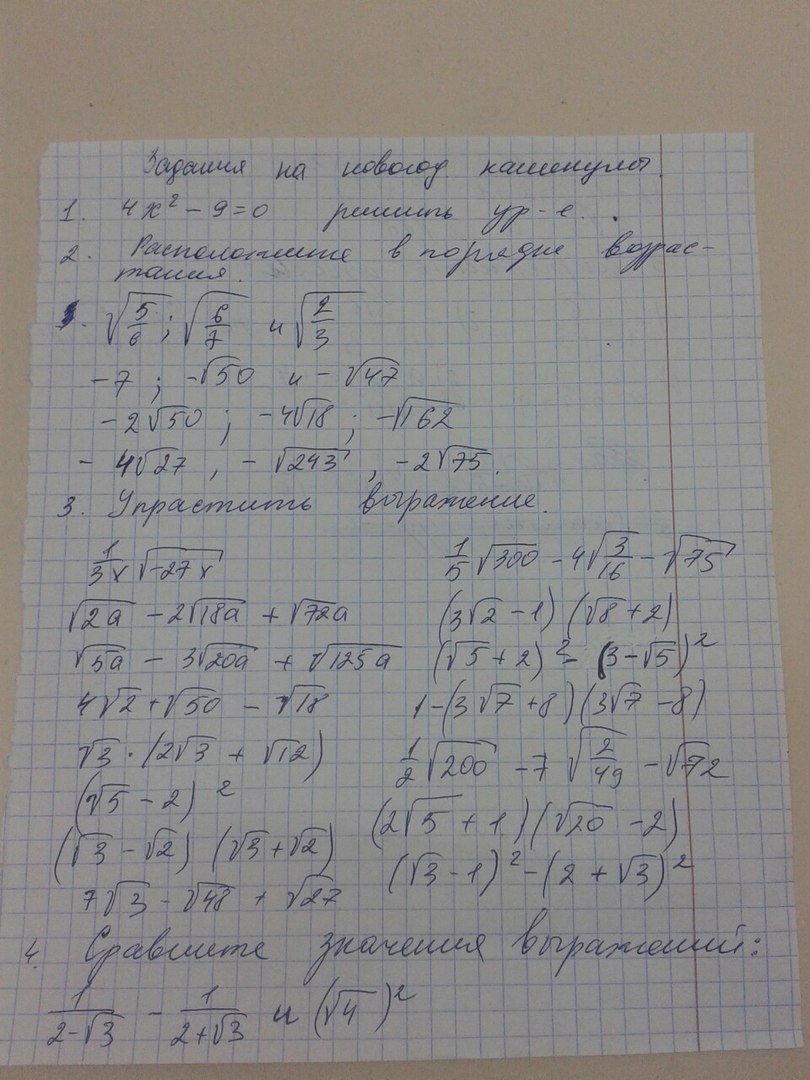 Задания на новогод. каникулы.
1. 4x² - 9 = 0 решить ур-е.
2. Расположите в порядке возрас-
тания.
√(5/6); √(6/7) и √(2/3)
-7; -√50 и -√47
-2√50; -4√18; -√162
-4√27, -√243, -2√75.
3. Упрастить выражение.
1/3x √(-27x)
√(2a) - 2√(18a) + √(72a)
√(5a) - 3√(20a) + √(125a)
4√2 + √50 - √18
√3 · (2√3 + √12)
(√5 - 2)²
(√3 - √2) (√3 + √2)
7√3 - √48 + √27
1/5 √300 - 4√(3/16) - √75
(3√2 - 1) (√8 + 2)
(√5 + 2)² - (3 - √5)²
1 - (3√7 + 8) (3√7 - 8)
1/2 √200 - 7√(2/49) - √72
(2√5 + 1) (√20 - 2)
(√3 - 1)² - (2 + √3)²
4. Сравните значения выражений:
1/(2-√3) - 1/(2+√3) и (√4)²